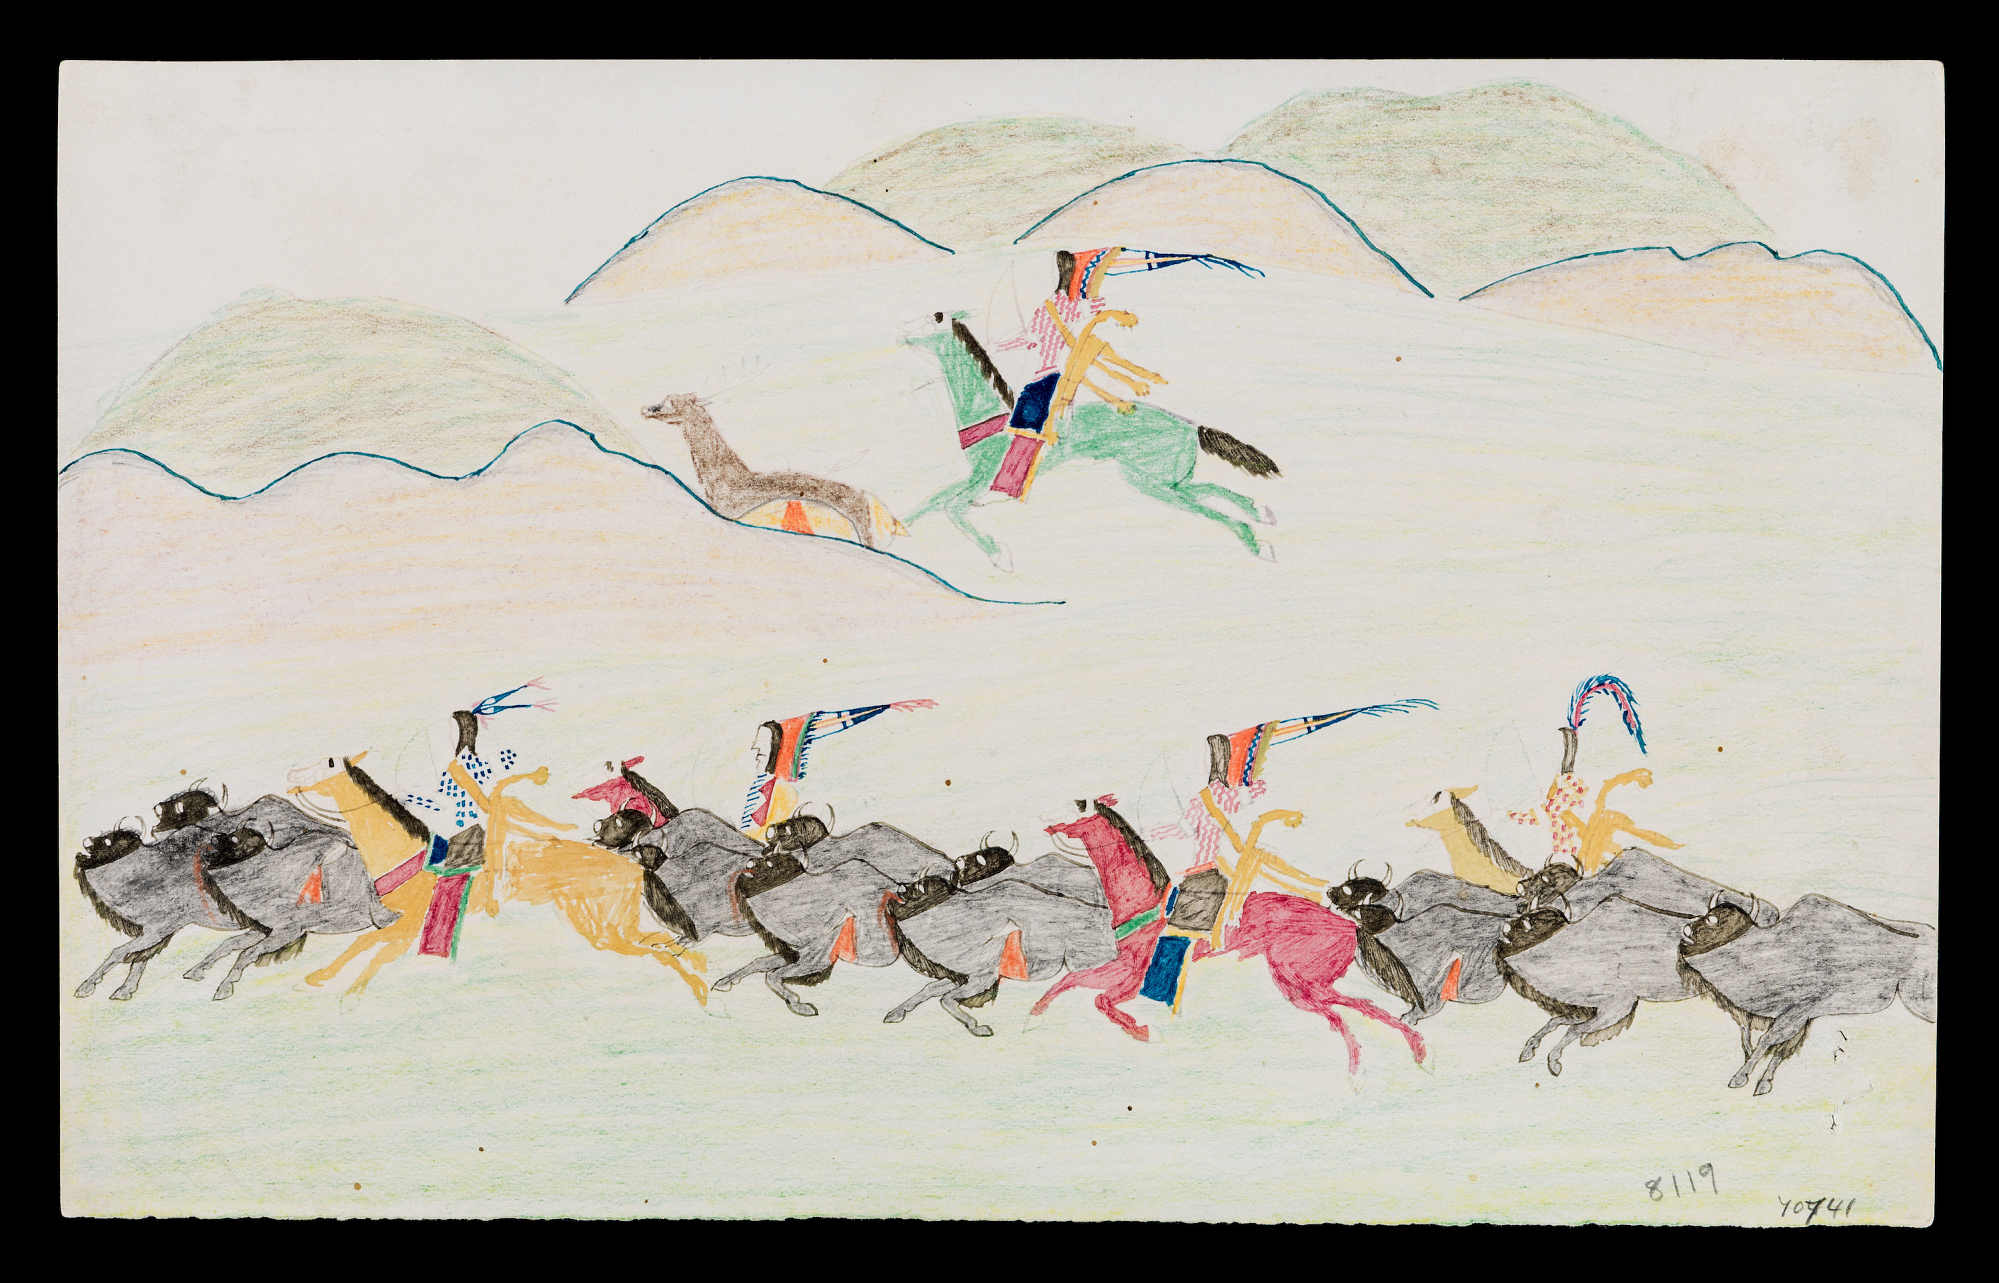 8119
70741